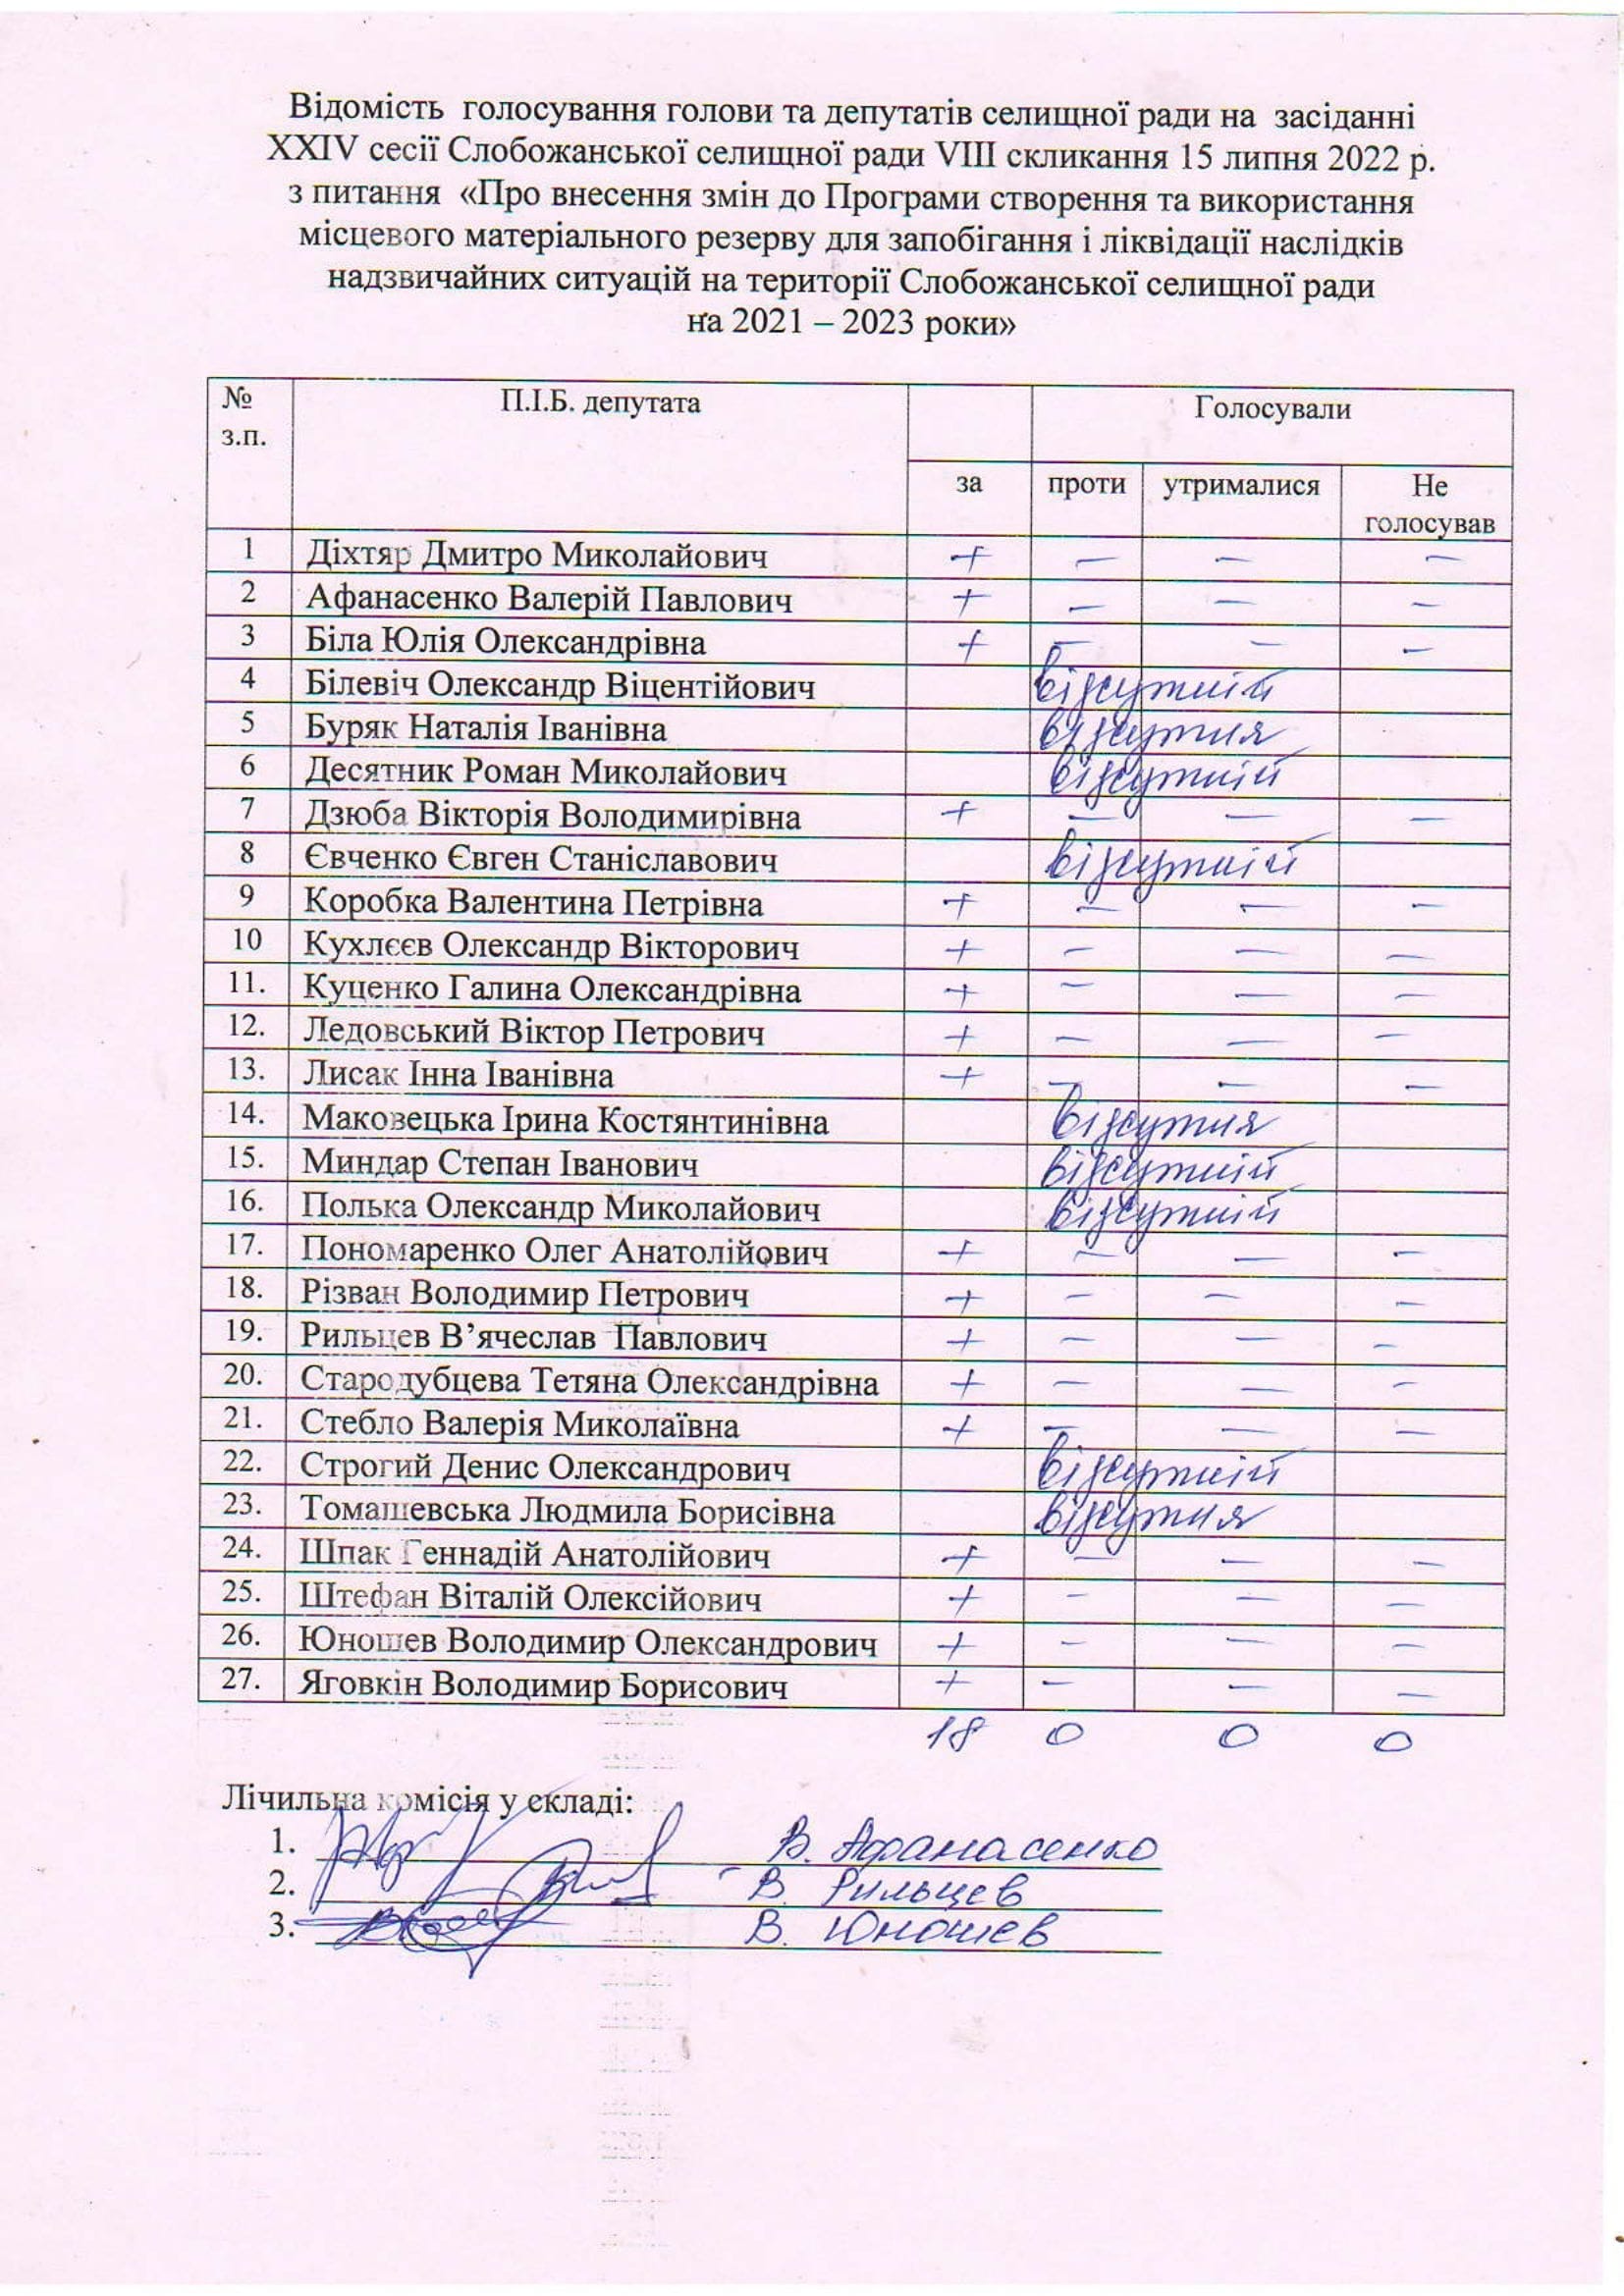 Відомість голосування голови та депутатів селищної ради на засіданні
XXIV сесії Слобожанської селищної ради VIII скликання 15 липня 2022 р.
з питання «Про внесення змін до Програми створення та використання
місцевого матеріального резерву для запобігання і ліквідації наслідків
надзвичайних ситуацій на території Слобожанської селищної ради
на 2021 – 2023 роки»
№ з.п. П.І.Б. депутата Голосували
за проти утрималися Не голосував
1 Діхтяр Дмитро Миколайович + — — —
2 Афанасенко Валерій Павлович + — — —
3 Біла Юлія Олександрівна + — — —
4 Білевіч Олександр Віцентійович відсутній
5 Буряк Наталія Іванівна відсутня
6 Десятник Роман Миколайович відсутній
7 Дзюба Вікторія Володимирівна + — — —
8 Євченко Євген Станіславович відсутній
9 Коробка Валентина Петрівна + — — —
10 Кухлєєв Олександр Вікторович + — — —
11. Куценко Галина Олександрівна + — — —
12. Ледовський Віктор Петрович + — — —
13. Лисак Інна Іванівна + — — —
14. Маковецька Ірина Костянтинівна відсутня
15. Миндар Степан Іванович відсутній
16. Полька Олександр Миколайович відсутній
17. Пономаренко Олег Анатолійович + — — —
18. Різван Володимир Петрович + — — —
19. Рильцев В’ячеслав Павлович + — — —
20. Стародубцева Тетяна Олександрівна + — — —
21. Стебло Валерія Миколаївна + — — —
22. Строгий Денис Олександрович відсутній
23. Томашевська Людмила Борисівна відсутня
24. Шпак Геннадій Анатолійович + — — —
25. Штефан Віталій Олексійович + — — —
26. Юношев Володимир Олександрович + — — —
27. Яговкін Володимир Борисович + — — —
18 0 0 0
Лічильна комісія у складі:
1. В. Афанасенко
2. В. Рильцев
3. В. Юношев